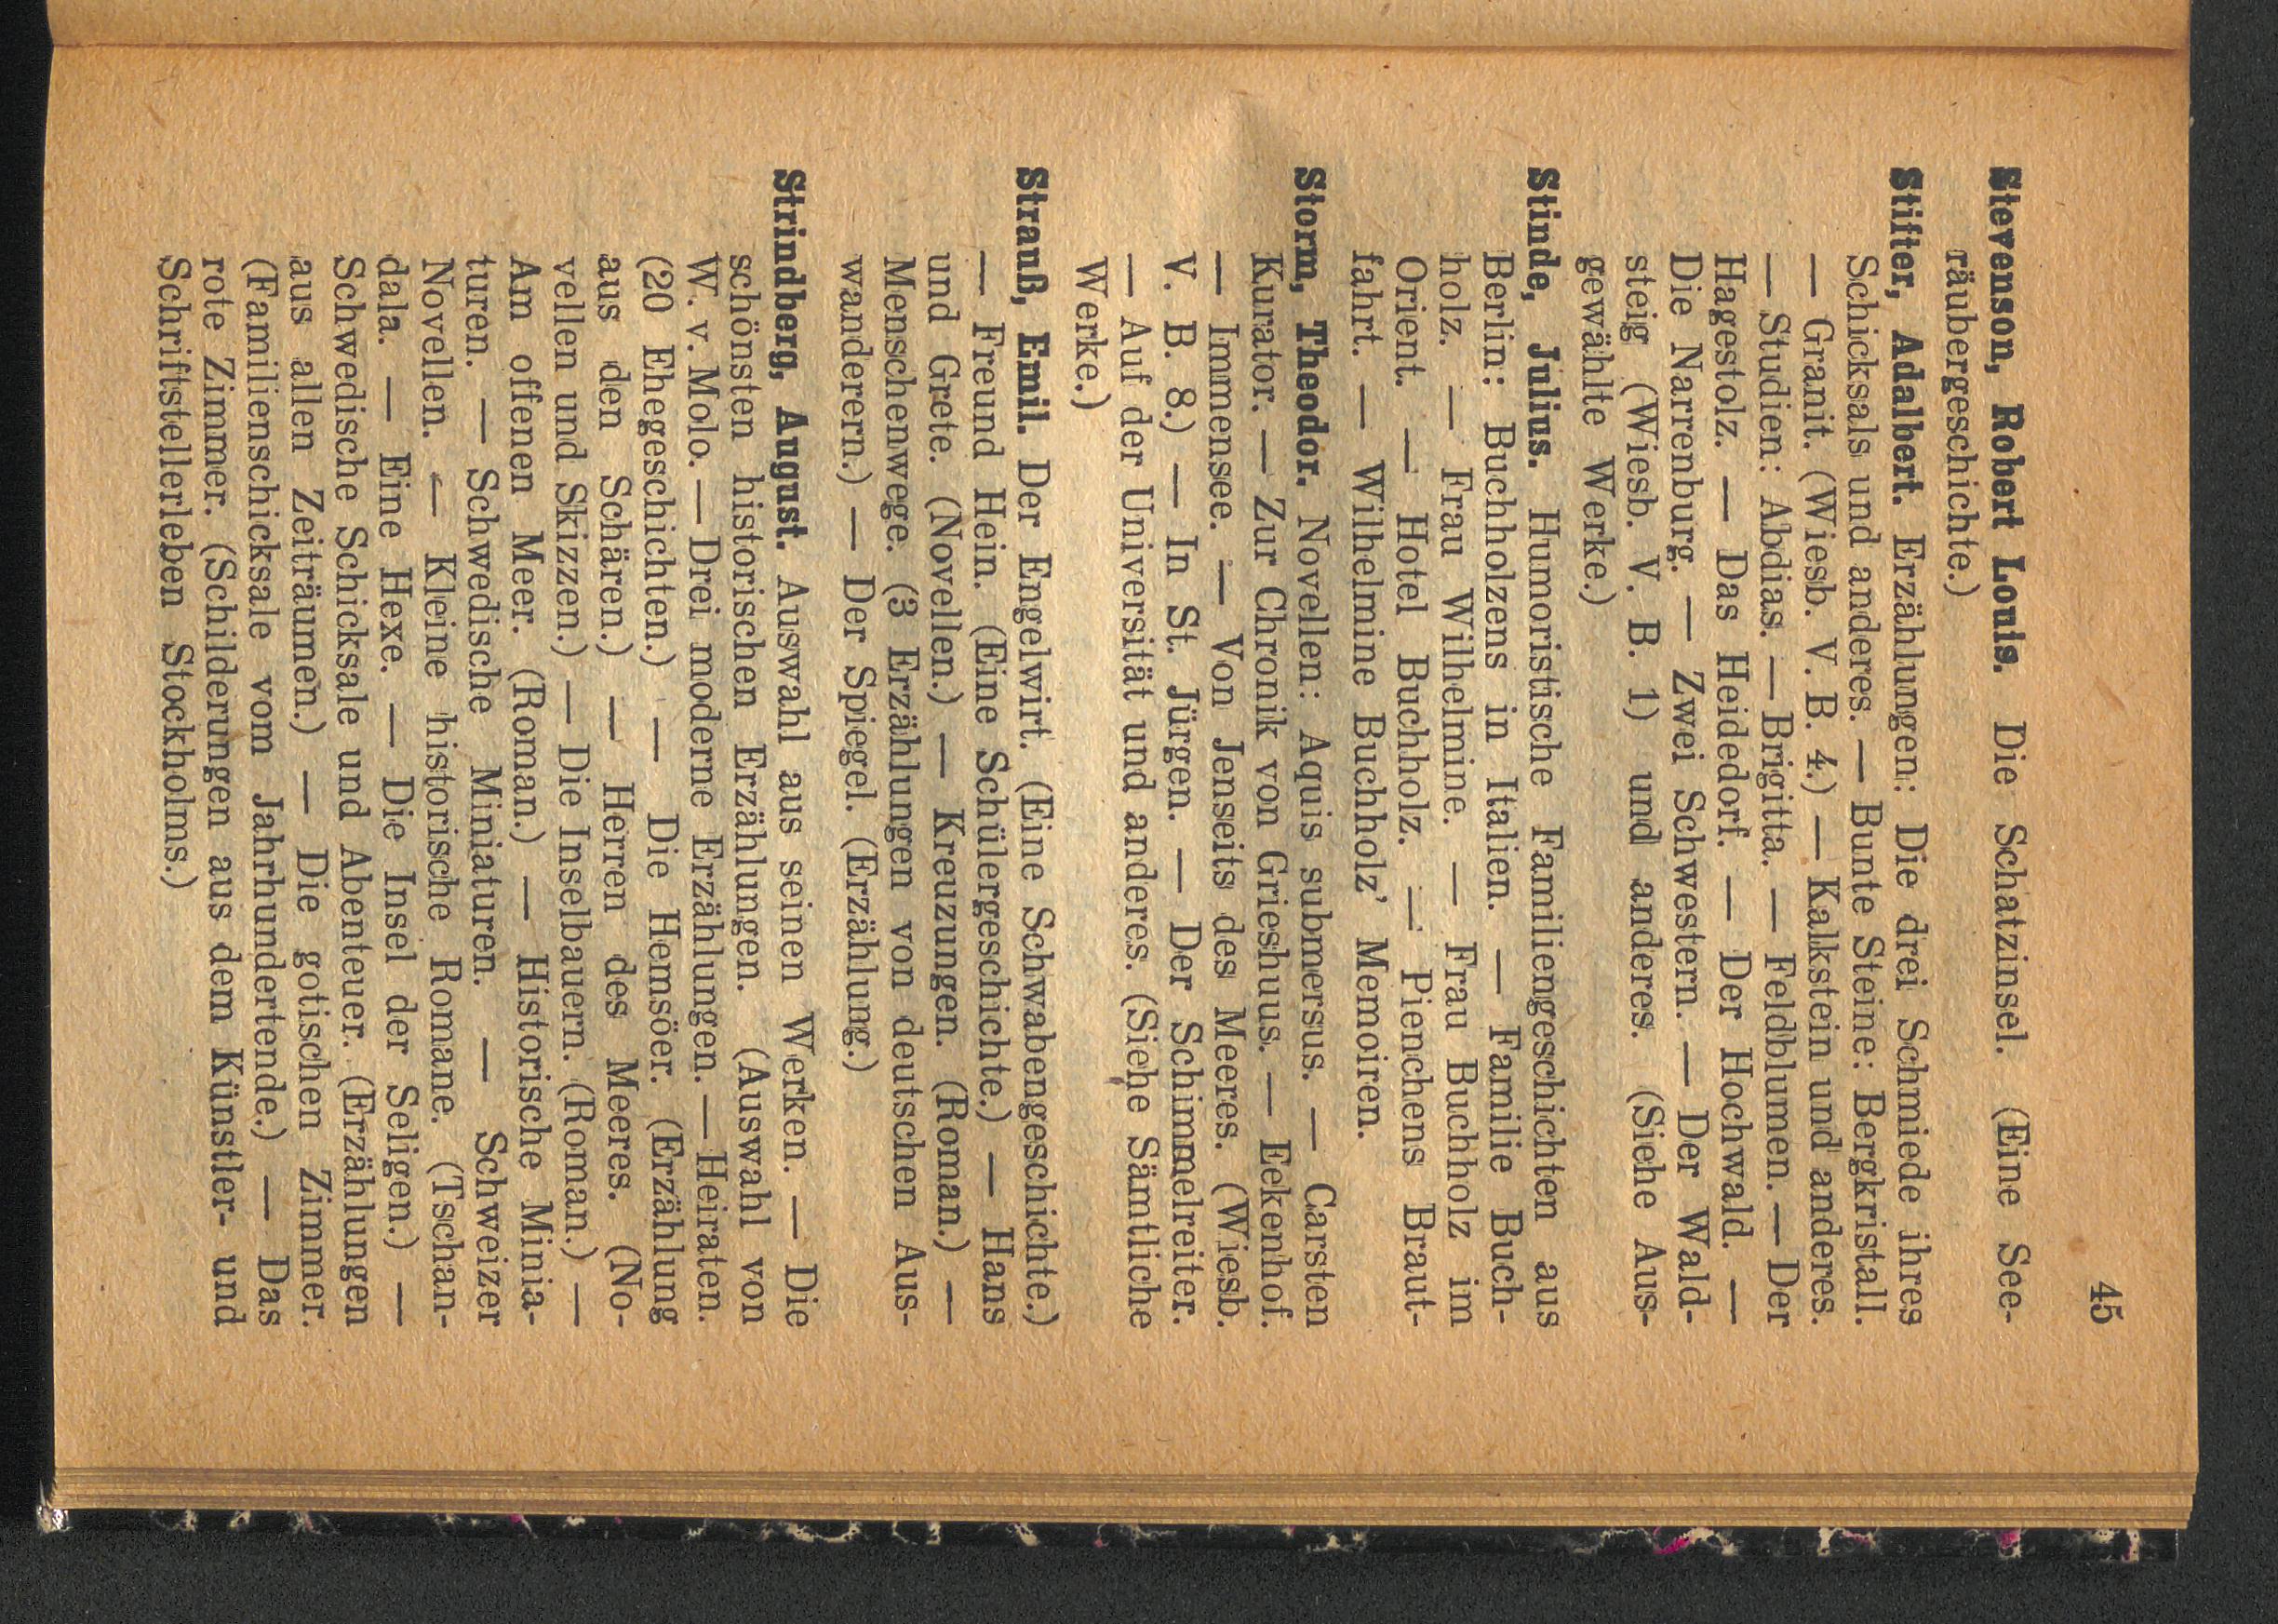 45
Stevenson, Robert Louis. Die Schatzinsel. (Eine See-
räubergeschichte.)
Stifter, Adalbert. Erzählungen: Die drei Schmiede ihres
Schicksals und anderes. — Bunte Steine: Bergkristall.
— Granit. (Wiesb. V. B. 4.) — Kalkstein und anderes.
— Studien: Abdias. — Brigitta. — Feldblumen. — Der
Hagestolz. — Das Heidedorf. — Der Hochwald. —
Die Narrenburg. — Zwei Schwestern. — Der Wald-
steig (Wiesb. V. B. 1) und anderes. (Siehe Aus-
gewählte Werke.)
Stinde, Julius. Humoristische Familiengeschichten aus
Berlin: Buchholzens in Italien. — Familie Buch-
holz. — Frau Wilhelmine. — Frau Buchholz im
Orient. — Hotel Buchholz. — Pienchens Braut-
fahrt. — Wilhelmine Buchholz’ Memoiren.
Storm, Theodor. Novellen: Aquis submersus. — Carsten
Kurator. — Zur Chronik von Grieshuus. — Eekenhof.
— Immensee. — Von Jenseits des Meeres. (Wiesb.
V. B. 8.) — In St. Jürgen. — Der Schimmelreiter.
— Auf der Universität und anderes. (Siehe Sämtliche
Werke.)
Strauß, Emil. Der Engelwirt. (Eine Schwabengeschichte.)
— Freund Hein. (Eine Schülergeschichte.) — Hans
und Grete. (Novellen.) — Kreuzungen. (Roman.) —
Menschenwege. (3 Erzählungen von deutschen Aus-
wanderern.) — Der Spiegel. (Erzählung.)
Strindberg, August. Auswahl aus seinen Werken. — Die
schönsten historischen Erzählungen. (Auswahl von
W. v. Molo. — Drei moderne Erzählungen. — Heiraten.
(20 Ehegeschichten.) — Die Hemsöer. (Erzählung
aus den Schären.) — Herren des Meeres. (No-
vellen und Skizzen.) — Die Inselbauern. (Roman.) —
Am offenen Meer. (Roman.) — Historische Minia-
turen. — Schwedische Miniaturen. — Schweizer
Novellen. — Kleine historische Romane. (Tschan-
dala. — Eine Hexe. — Die Insel der Seligen.) —
Schwedische Schicksale und Abenteuer. (Erzählungen
aus allen Zeiträumen.) — Die gotischen Zimmer.
(Familienschicksale vom Jahrhundertende.) — Das
rote Zimmer. (Schilderungen aus dem Künstler- und
Schriftstellerleben Stockholms.)